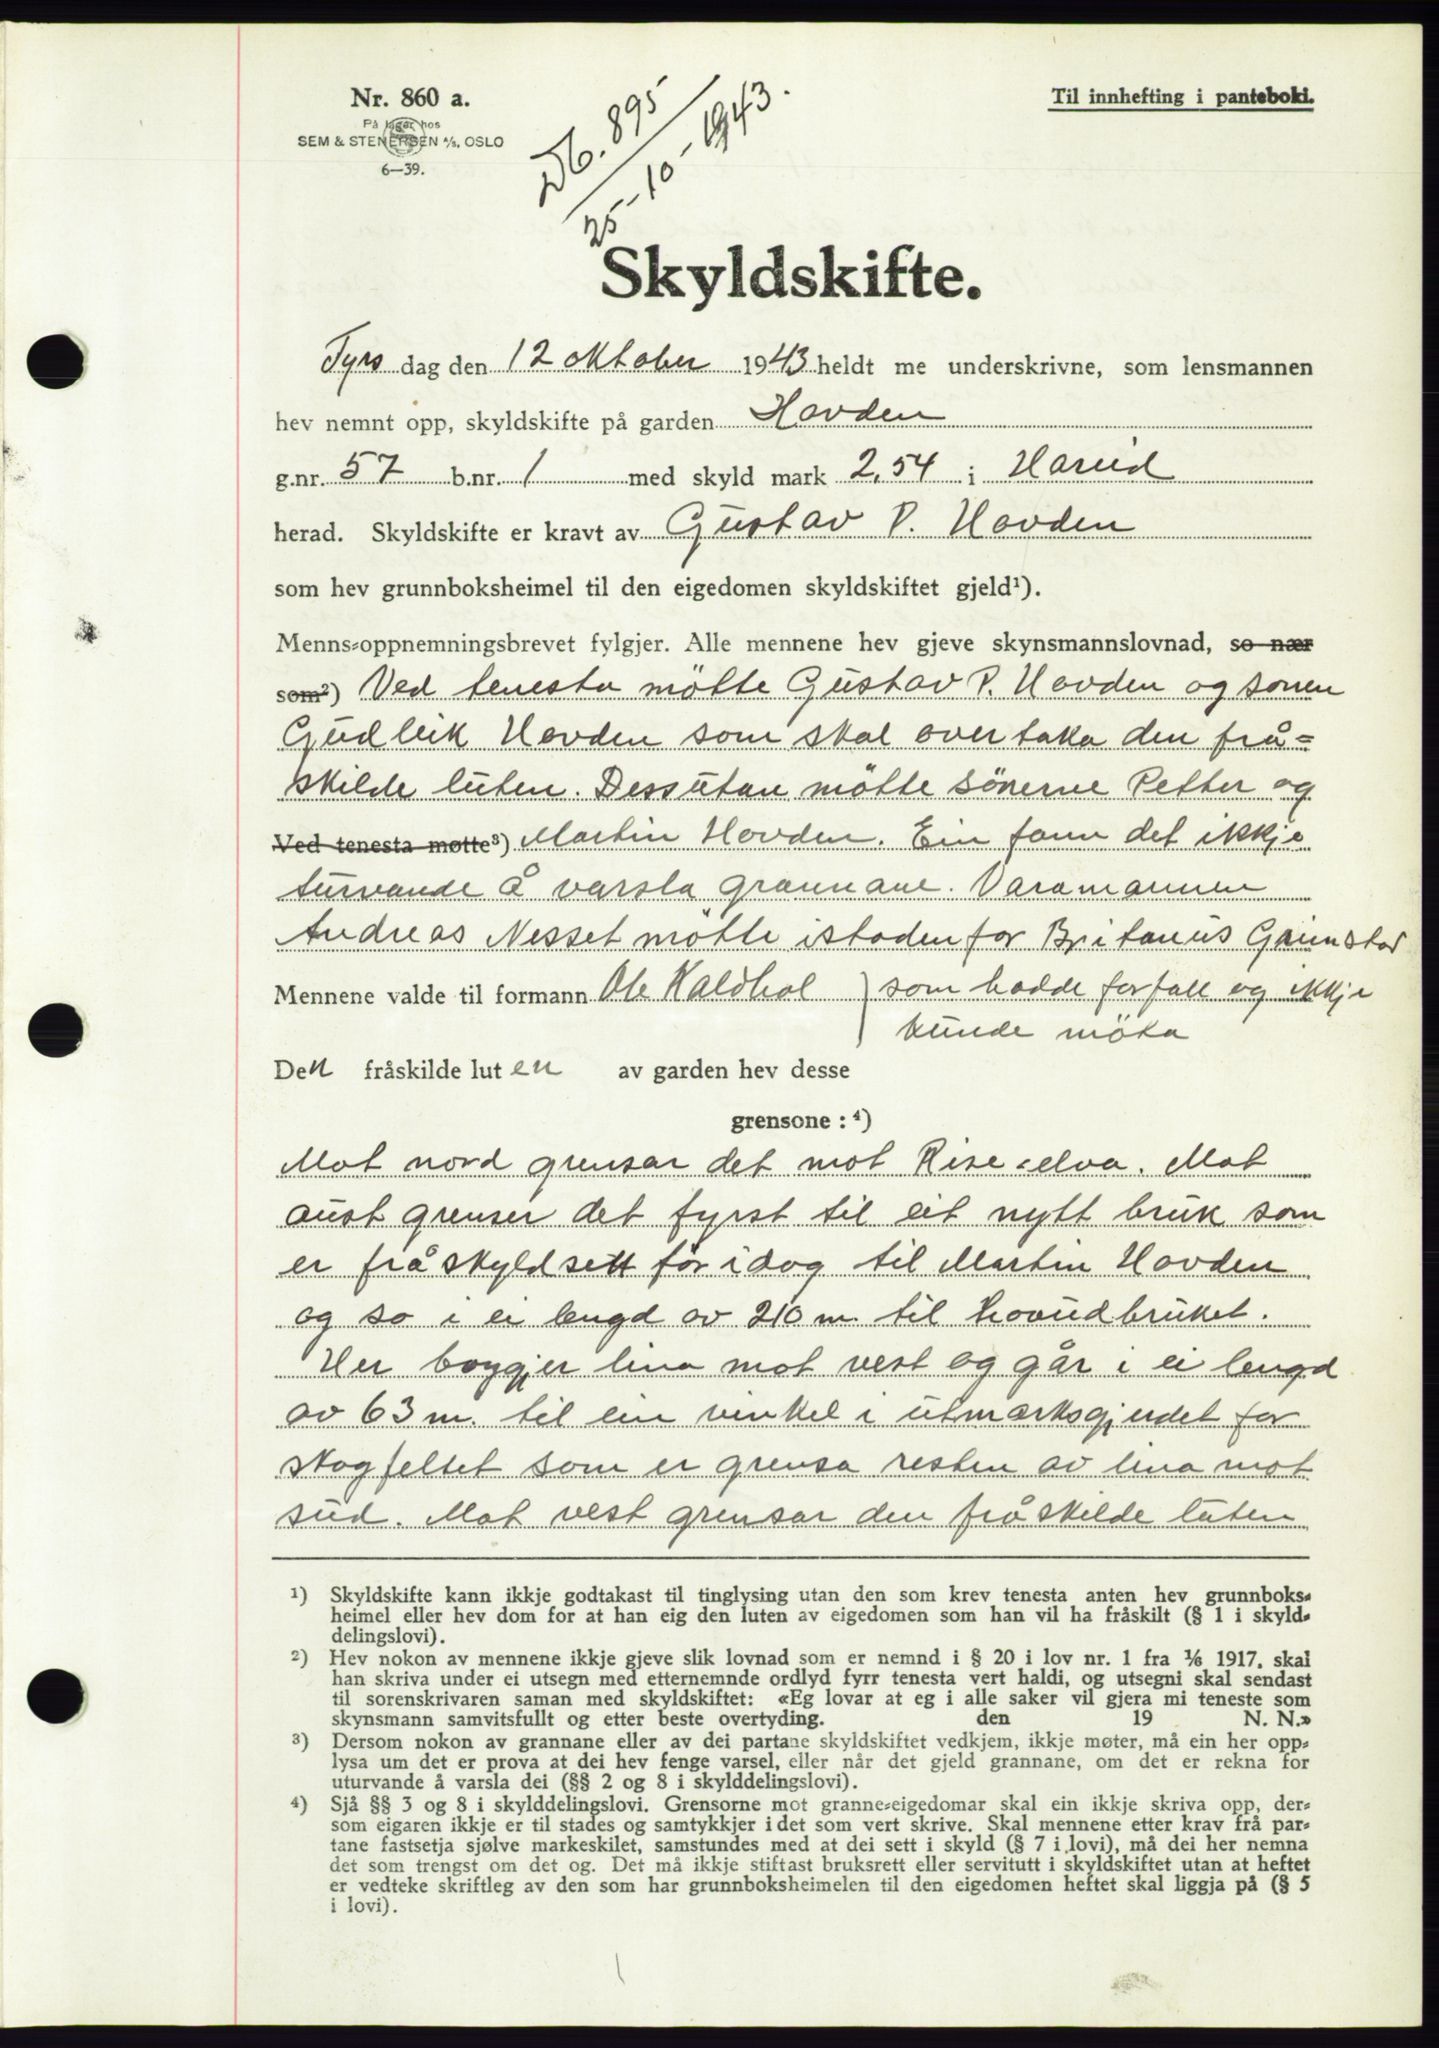 Nr. 860 a.
På lager hos
SEM & STENERSEN A/S, OSLO
6—39.
Til innhefting i panteboki.
Db. 895
25-10-1943.
Skyldskifte.
Tyrs dag den 12 oktober 1943 heldt me underskrivne, som lensmannen
hev nemnt opp, skyldskifte på garden Hovden
g.nr. 57 b.nr. 1 med skyld mark 2,54 i Hareid
herad. Skyldskifte er kravt av Gustav P. Hovden
som hev grunnboksheimel til den eigedomen skyldskiftet gjeld¹).
Menns-oppnemningsbrevet fylgjer. Alle mennene hev gjeve skynsmannslovnad, so nær
som²) Ved tenesta mötte Gustav P. Hovden og sonen
Gudleik Hovden som skal overtaka den frå=
skilde luten. Dessutan mötte sönerne Petter og
Ved tenesta møtte³) Martin Hovden. Ein fann det ikkje
turvande å varsla grannane. Varamannen
Andreas Nesset mötte istaden for Britanus Grimstad
Mennene valde til formann Ole Kaldhol ) som hadde forfall og ikkje
kunde möta
Den fråskilde luten av garden hev desse
grensone : ⁴)
Mot nord grensar det mot Rise-elva. Mot
aust grenser det fyrst til eit nytt bruk som
er frå skyldsett för idag til Martin Hovden
og so i ei lengd av 210 m. til hovudbruket.
Her bøygjer lina mot vest og går i ei lengd
av 63 m. til ein vinkel i utmarksgjerdet for
skogfeltet som er grensa resten av lina mot
sud. Mot vest grensar den fråskilde luten
¹) Skyldskifte kann ikkje godtakast til tinglysing utan den som krev tenesta anten hev grunnboks-
heimel eller hev dom for at han eig den luten av eigedomen som han vil ha fråskilt (§ 1 i skyld-
delingslovi).
²) Hev nokon av mennene ikkje gjeve slik lovnad som er nemnd i § 20 i lov nr. 1 fra 1/6 1917, skal
han skriva under ei utsegn med etternemnde ordlyd fyrr tenesta vert haldi, og utsegni skal sendast
til sorenskrivaren saman med skyldskiftet: «Eg lovar at eg i alle saker vil gjera mi teneste som
skynsmann samvitsfullt og etter beste overtyding. den 19 N. N.»
³) Dersom nokon av grannane eller av dei partane skyldskiftet vedkjem, ikkje møter, må ein her opp-
lysa um det er prova at dei hev fenge varsel, eller når det gjeld grannane, om det er rekna for
uturvande å varsla dei (§§ 2 og 8 i skylddelingslovi).
⁴) Sjå §§ 3 og 8 i skylddelingslovi. Grensorne mot granne-eigedomar skal ein ikkje skriva opp, der-
som eigaren ikkje er til stades og samtykkjer i det som vert skrive. Skal mennene etter krav frå par-
tane fastsetja sjølve markeskilet, samstundes med at dei sett i skyld (§ 7 i lovi), må dei her nemna
det som trengst om det og. Det må ikkje stiftast bruksrett eller servitutt i skyldskiftet utan at heftet
er vedteke skriftleg av den som har grunnboksheimelen til den eigedomen heftet skal liggja på (§ 5
i lovi).